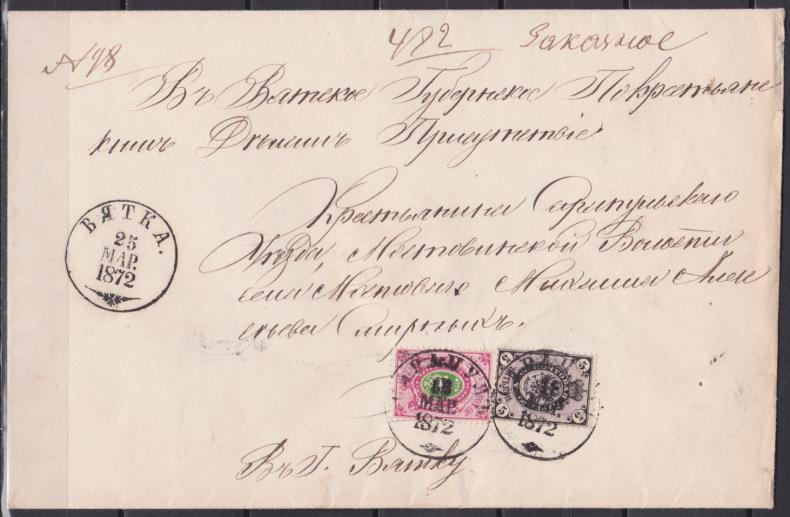 № 48
482 Заказное
Въ Вятское Губернское По Крестьянс
кимъ Дѣламъ Присутствіе
Крестьянина Сарапульскаго
Уѣзда, Мостовинской Волости
села Мостоваго Михаила Алек
сѣева Смирныхъ.
ВЯТКА.
25
МАР.
1872
САРАПУЛ
13
МАР.
1872
5 5
МАР.
1872
5 5
Въ Г. Вятку